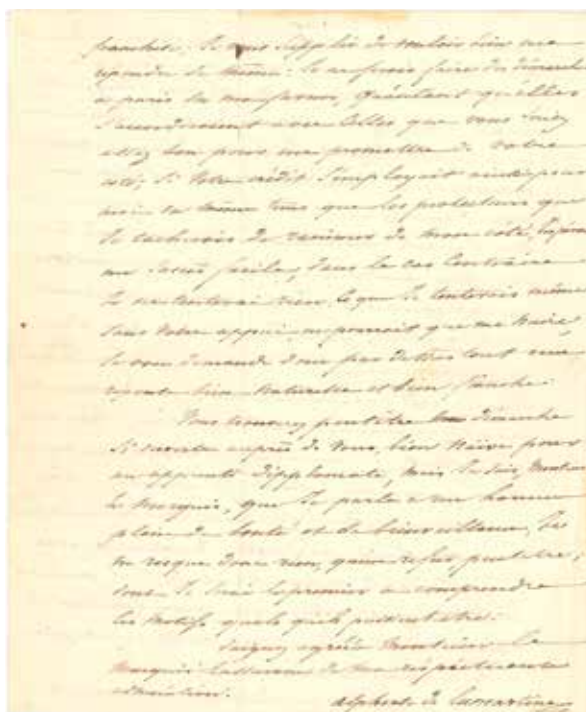 franchise; Je vous supplie de vouloir bien me
répondre de même: Je ne ferai faire des démarches
a paris en ma faveur, qu'autant qu'elles
s'accorderaient avec celles que vous seriez
assez bon pour me promettre de votre
coté; Si votre crédit s'employait ainsi pour
moi en même tems que les protections que
Je tacherais de ranimer de mon coté,
un succès facile, dans le cas contraire
Je ne tenterai rien, ce que Je tenterais même
sans votre appui, ne pourrait que me nuire,
Je vous demande donc par dessus tout une
réponse bien naturelle et bien franche.
Vous trouverez peut être démarche
Si directe auprès de vous, bien naïve pour
un apprenti dipplomate, mais Je sais, Monsieur
le Marquis, que Je parle a un homme
plein de bonté et de bienveillance, Je
ne risque donc rien, qu'un refus, peut être,
dont Je serai le premier a comprendre
les motifs quels qu'ils puissent être.
Daignez agréer Monsieur le
Marquis l'assurance de ma respectueuse
admiration.
alphonse de lamartine